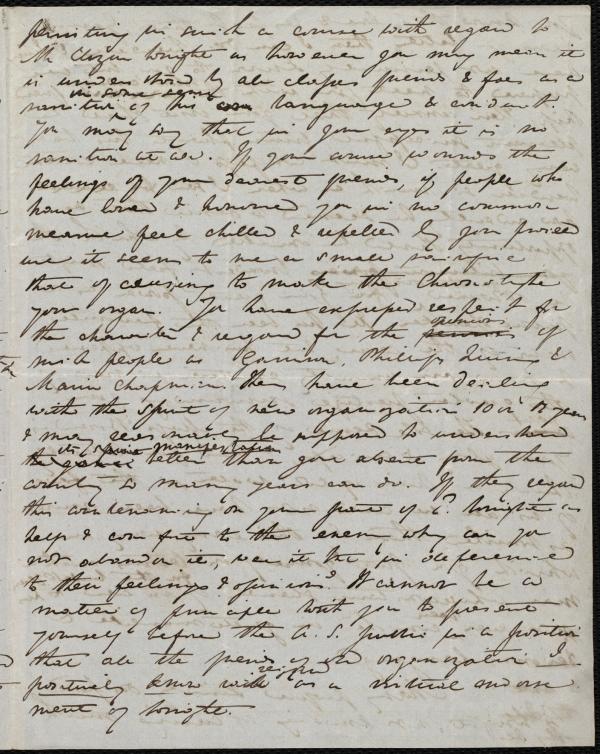 persisting in such a course with regard to
Mr Elizur Wright as however you may mean it
is understood by all classes friends & foes as a
in some sense
sanction of his language & conduct.
You may say that in your eyes it is no
sanction at all. If your course wounds the
feelings of your dearest friends, if people who
have loved & honored you in no common
measure feel chilled & repelled by your
it seems to me a small sacrifice
that of ceasing to make the Chronotype
your organ. You have expressed respect for
the character & regard for the opinions of
such people as Garrison, Phillips Quincy &
Maria Chapman. They have been dealing
with the spirit of new organization 10 or 12 years
& may reasonably be supposed to understand
its manifestation
better than you absent from the
country so many years can do. If they regard
this continuing on your part of E. Wright as
help & comfort to the enemy why can you
not abandon it, were it but in deference
to their feelings & opinions? It cannot be a
matter of principle with you to present
yourself before the A. S. public in a position
that all the friends of old organization I
positively know will regard as a virtual endorse
ment of Wright.